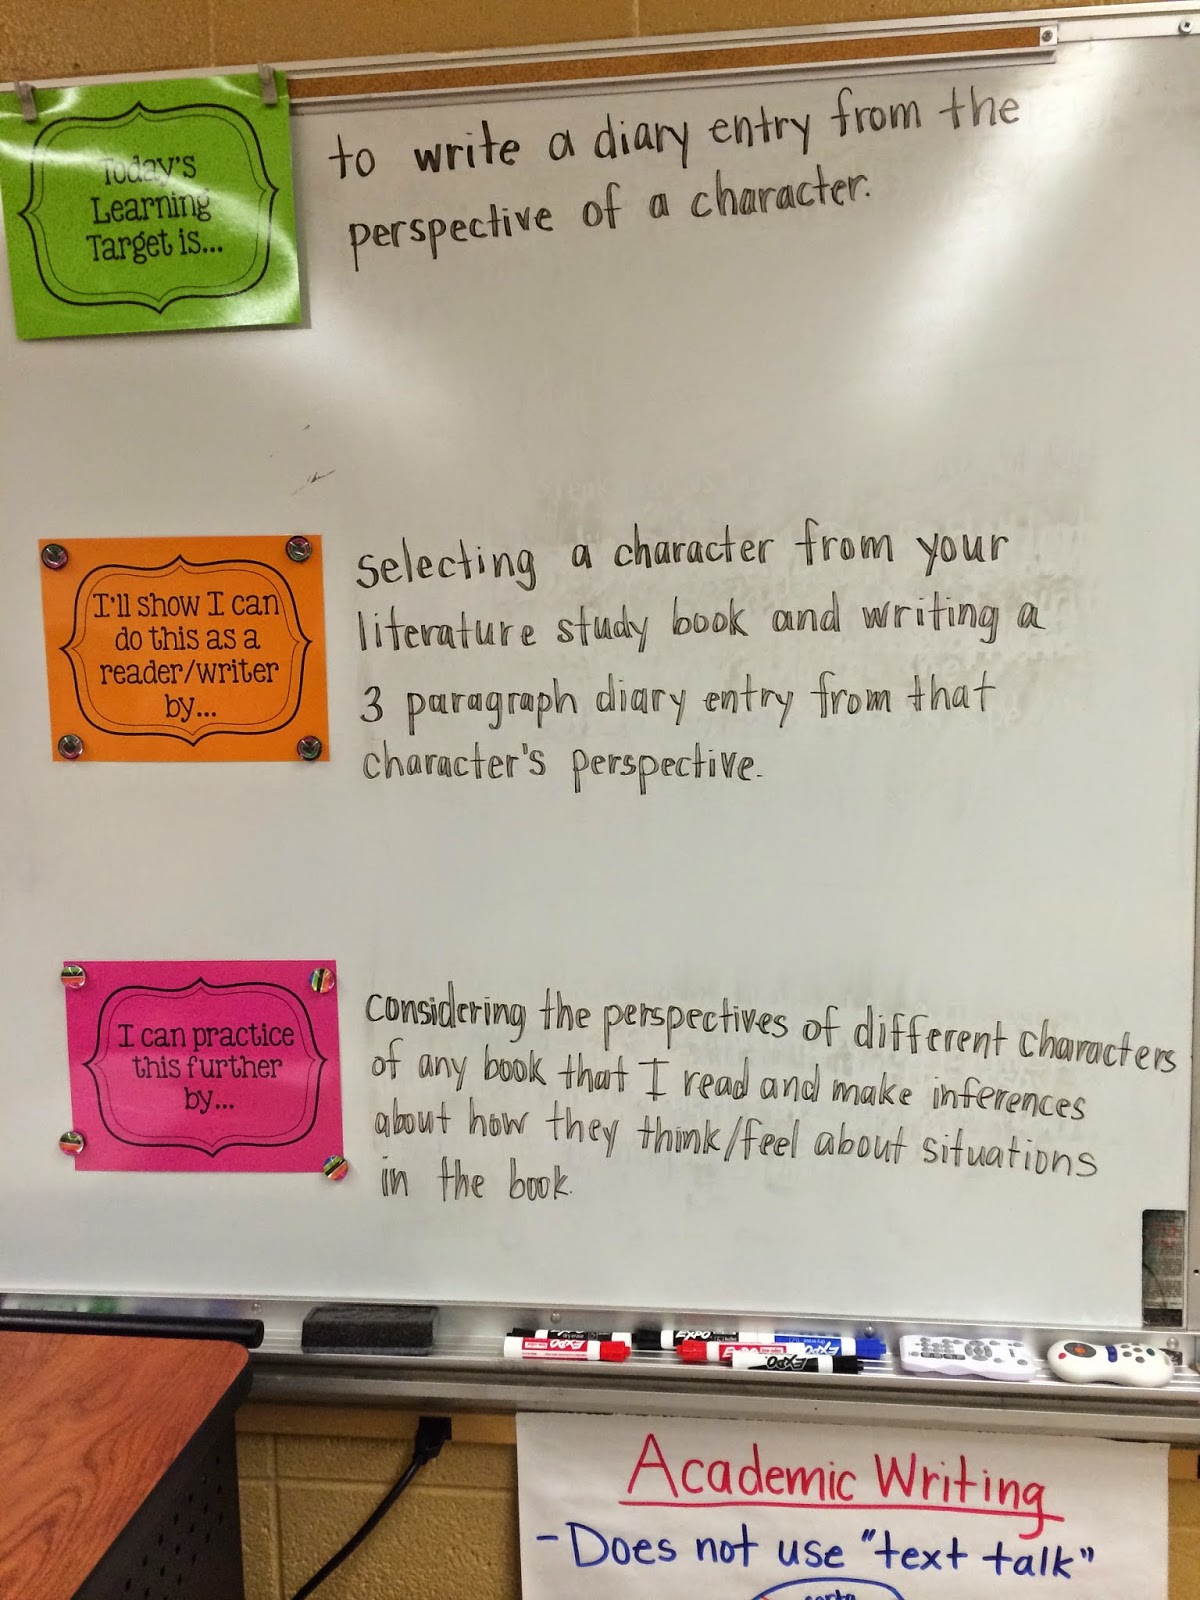 Today's
Learning
Target is...
to write a diary entry from the
perspective of a character.
I'll show I can
do this as a
reader/writer
by...
selecting a character from your
literature study book and writing a
3 paragraph diary entry from that
character's perspective.
I can practice
this further
by...
considering the perspectives of different characters
of any book that I read and make inferences
about how they think/feel about situations
in the book.
EXPO
EXPO
EXPO
EXPO
EXPO
Academic Writing
- Does not use "text talk"